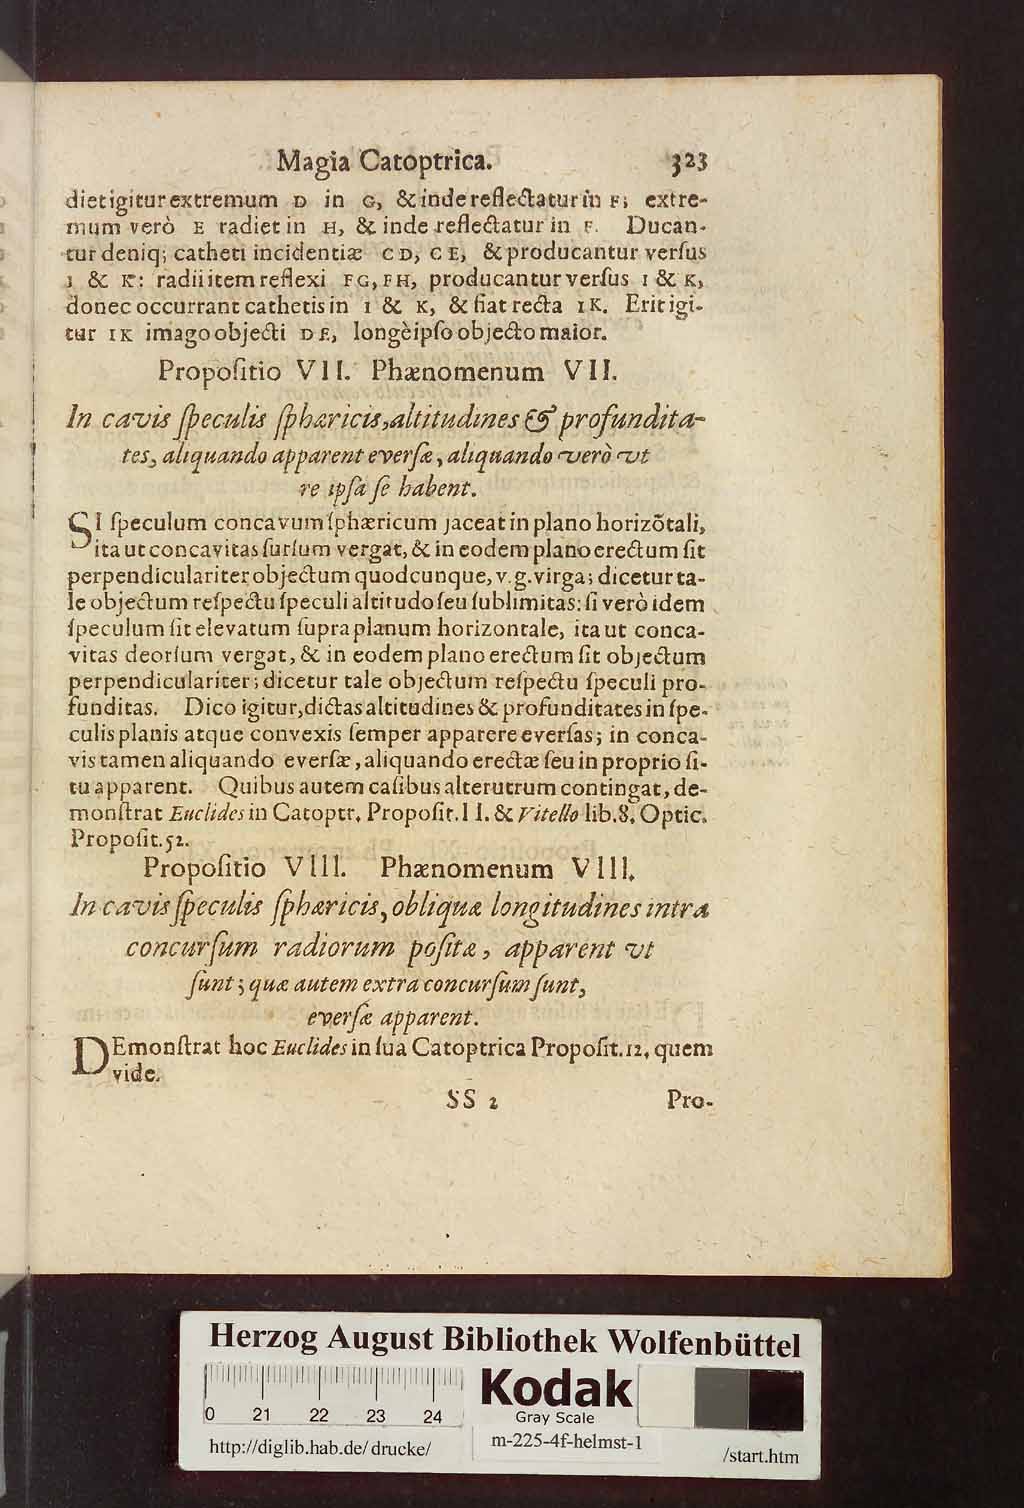 Magia Catoptrica. 323
diet igitur extremum D in G, & inde reflectatur in F; extre-
mum verò E radiet in H, & inde reflectatur in F. Ducan-
tur deniq; catheti incidentiæ CD, CE, & producantur verſus
I & K: radii item reflexi FG, FH, producantur verſus I & K,
donec occurrant cathetis in I & K, & fiat recta IK. Erit igi-
tur IK imago objecti DE, longè ipſo objecto maior.
Propoſitio VII. Phænomenum VII.
In cavis ſpeculis ſphæricis, altitudines & profundita-
tes, aliquando apparent everſæ, aliquando verò vt
re ipſa ſe habent.
SI ſpeculum concavum ſphæricum jaceat in plano horizõtali,
ita ut concavitas ſurſum vergat, & in eodem plano erectum ſit
perpendiculariter objectum quodcunque, v.g. virga; dicetur ta-
le objectum reſpectu ſpeculi altitudo ſeu ſublimitas: ſi verò idem
ſpeculum ſit elevatum ſupra planum horizontale, ita ut conca-
vitas deorſum vergat, & in eodem plano erectum ſit objectum
perpendiculariter; dicetur tale objectum reſpectu ſpeculi pro-
funditas. Dico igitur, dictas altitudines & profunditates in ſpe-
culis planis atque convexis ſemper apparere everſas; in conca-
vis tamen aliquando everſæ, aliquando erectæ ſeu in proprio ſi-
tu apparent. Quibus autem caſibus alterutrum contingat, de-
monſtrat Euclides in Catoptr. Propoſit. II. & Vitello lib. 8. Optic.
Propoſit. 52.
Propoſitio VIII. Phænomenum VIII.
In cavis ſpeculis ſphæricis, obliquæ longitudines intra
concurſum radiorum poſitæ, apparent vt
ſunt; quæ autem extra concurſum ſunt,
everſæ apparent.
DEmonſtrat hoc Euclides in ſua Catoptrica Propoſit. 12, quem
vide.
SS 2 Pro-
Herzog August Bibliothek Wolfenbüttel
0 21 22 23 24
Kodak
Gray Scale
http://diglib.hab.de/drucke/ m-225-4f-helmst-1 /start.htm